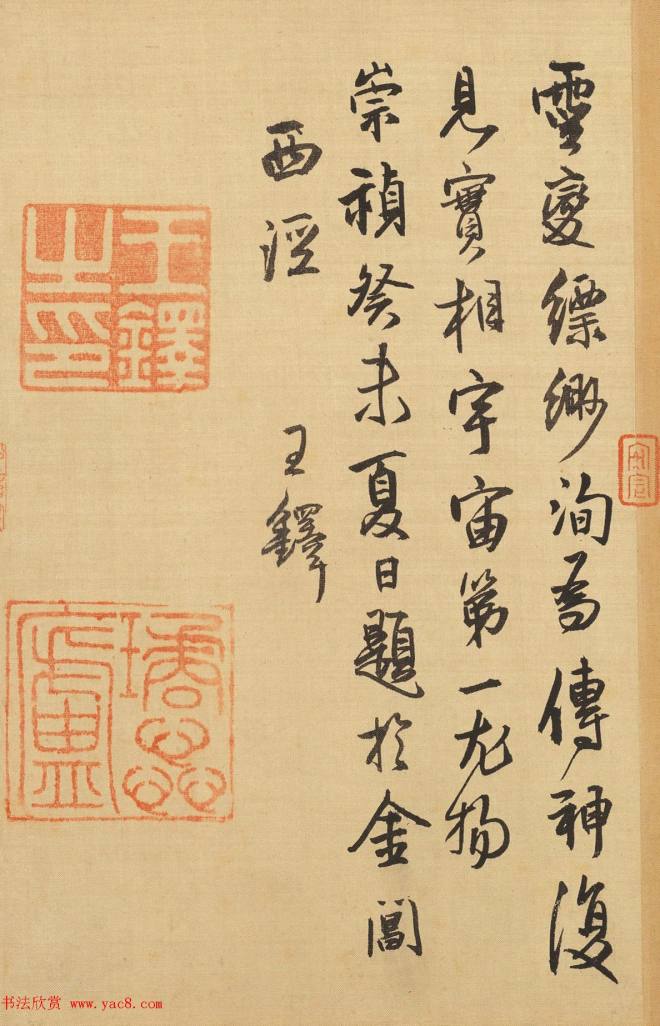 靈變縹緲洵為傳神復
見寶相宇宙第一尤物
崇禎癸未夏日題於金閶
西涇 王鐸
王鐸之印
書法欣赏 www.yac8.com